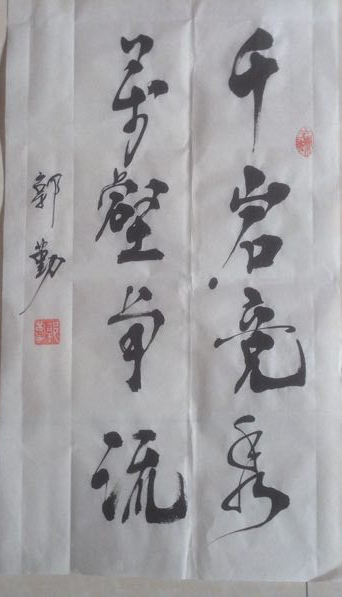 千岩竞秀
万壑争流
郭勤